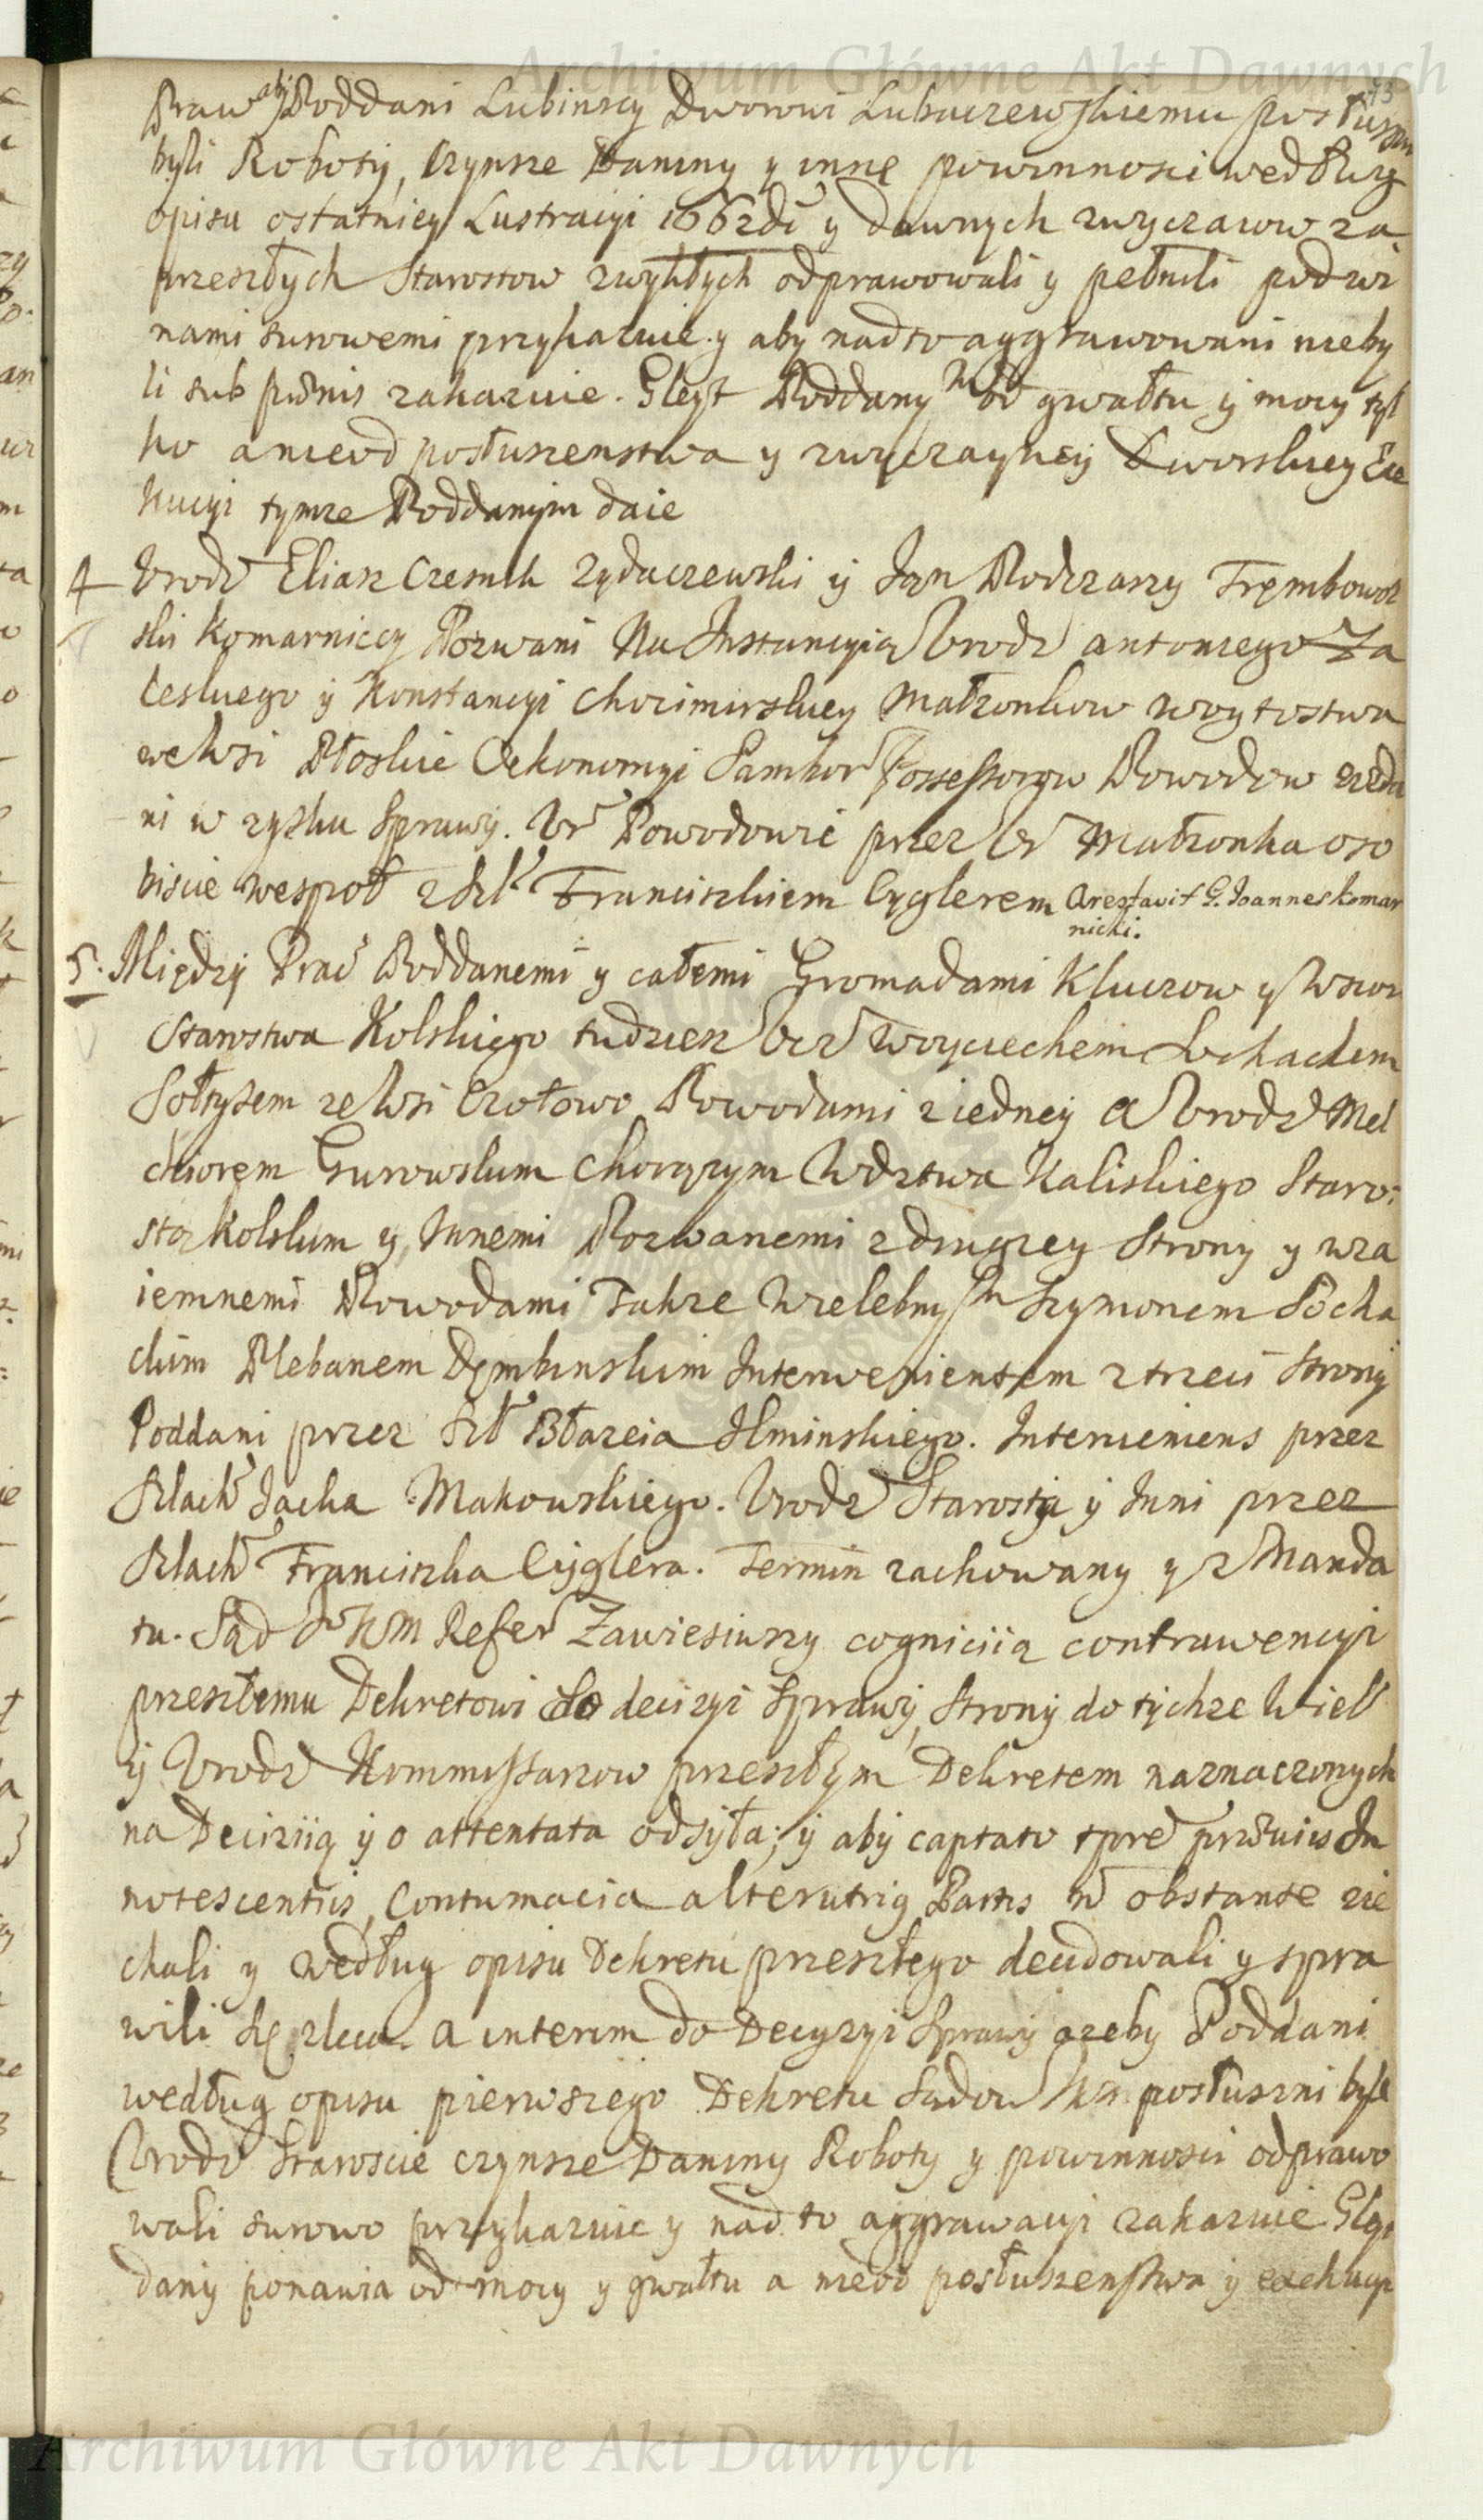 Archiwum Główne Akt Dawnych
Praw aby Poddani Lubinscy Dworowi Lubaczewskiemu posłuszni
byli Roboty, Czynsze Daniny y inne powinnosci według
opisu ostatniey Lustracyi 1662di y dawnych zwyczaiow za
przeszłych Starostow zwykłych odprawowali y pełnili pod wi
nami surowemi przykazuie y aby nadto aggrawowani nieby
li sub pœnis zakazuie. Gleyt Poddanym od gwałtu y mocy tyl
ko a nieod posłuszenstwa y zwyczayney Dworskiey Exe
kucyi tymze Poddanym daie
4 Urodz Eliasz Czesnik Zydaczewski y Jan Podczaszy Trembowol
ski Komarniccy Pozwani Na Instancyią Urodz antoniego Za
leskiego y Konstancyi Chocimirskiey Małzonkow woytostwa
we Wsi Płoskie Oekonomyi Sambor Possessorow Powodow zezda
ni w zysku Sprawy. Ur Powodowie przez Ur Małzonka oso
biscie wespoł z Szl Franciszkiem Cyglerem Arestavit G. Joannes Komar
nicki.
5. Między Prac Poddanemi y całemi Gromadami Kluczow y Wsiow
Starostwa Kolskiego tudziesz Ucz Woyciechem Sochackim
Sołtysem ze Wsi Czołowo Powodami z iedney a Urodz Mel
chiorem Gurowskim Chorązym Wdztwa Kaliskiego Staro
stą Kolskim y Innemi Pozwanemi z drugiey Strony y wza
iemnemi Powodami Takze Wielebnym Szymonem Socha
ckim Plebanem Dembinskim Interwenientem z trzeci Strony
Poddani przez Szl Błazeia Ilminskiego. Interueniens przez
Szlach Jacka Makowskiego. Urodz Starosta y Inni przez
Szlach Franciszka Cyglera. Termin zachowany y z Manda
tu. Sąd JKM Refer Zawiesiwszy cogniciią contrawencyi
przeszłemu Dekretowi do decizyi Sprawy, Strony do tychze Wiel
y Urodz Kommissarzow przeszłym Dekretem naznaczonych
na Deciziią y o attentata odsyła; y aby captato tpre præuiis In
notescentiis, Contumacia alterutrig Partis n obstante zie
chali y według opisu Dekretu przeszłego decidowali y spra
wili się zleca. a interim do Decyzyi Sprawy azeby Poddani
według opisu pierwszego Dekretu Sądow posłuszni byli
Urodz Staroscie czynsze Daniny Roboty y powinnosci odprawo
wali surowo przykazuie y nad to aggrawacyi zakazuie Gleyt
dany ponawia od mocy y gwałtu a nieod posłuszenstwa y exekucyi
Archiwum Główne Akt Dawnych